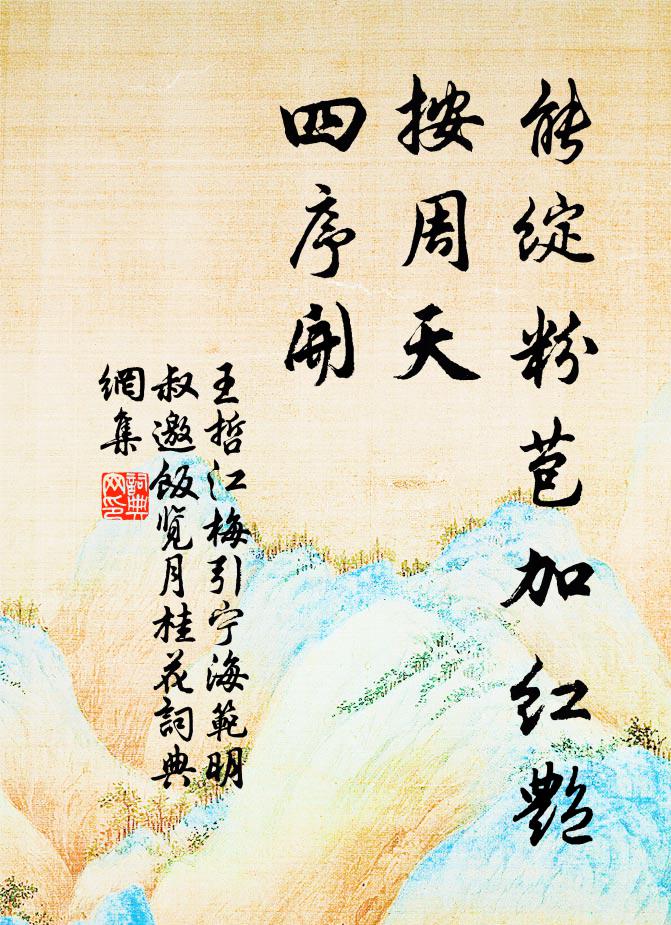 能绽粉苞加红艷
按周天
四序開
王哲江梅引宁海範明
叔邀飯览月桂花詞典
網集
詞典
网印